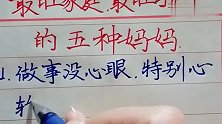 最旺家庭,最旺
的五种妈妈.
1.做事没心眼,特别心
软